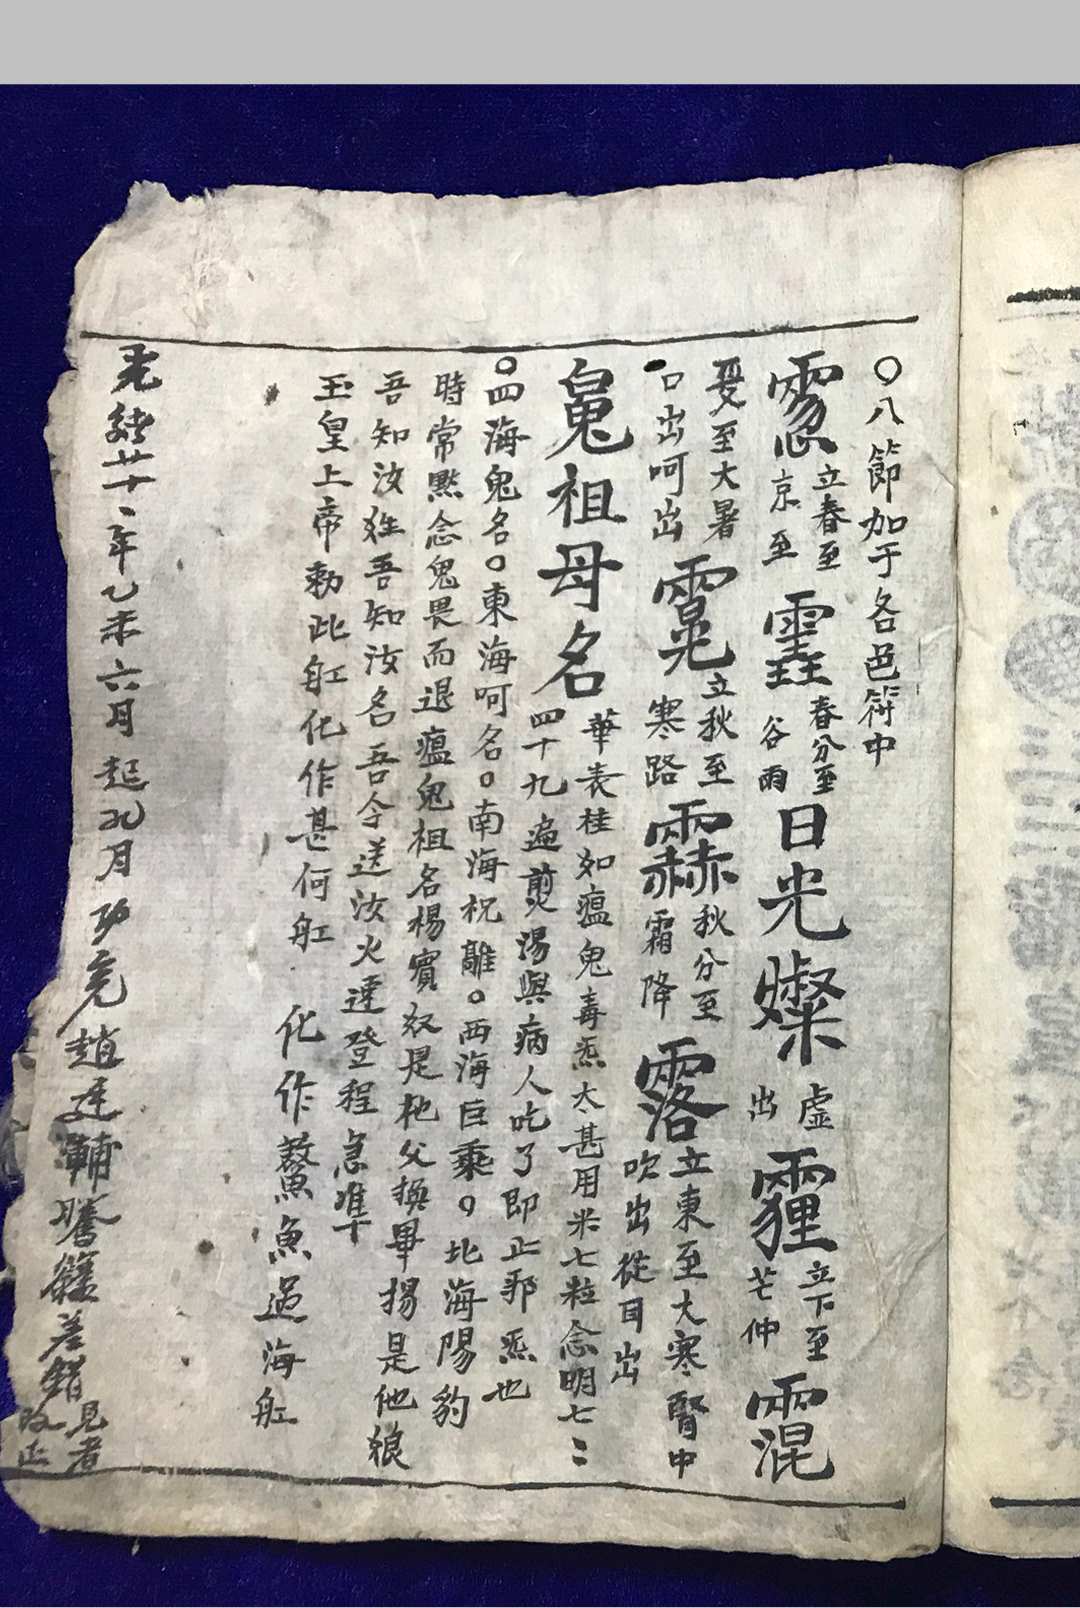 〇八節加于各邑符中
立春至京至 春分至谷雨 日光燦 虛出 立下至芒仲 霐
夏至大暑口出呵出 立秋至寒路 秋分至霜降 露 立東至大寒腎中吹出從耳出
鬼祖母名 華表桂如瘟鬼毒炁太甚用米七粒念明七〻
四十九遍煎湯與病人吃了即止邪炁也
〇四海鬼名〇東海呵名〇南海祝離〇西海巨乘〇北海陽豹
時常黙念鬼畏而退瘟鬼祖名楊賓奴是杝父換畢揚是他娘
吾知汝姓吾知汝名吾今送汝火速登程急准
玉皇上帝勅此舡化作甚何舡
化作鰲魚過海舡
光緒廿一年乙未六月起九月 功完趙廷輔謄錄差錯見者改正